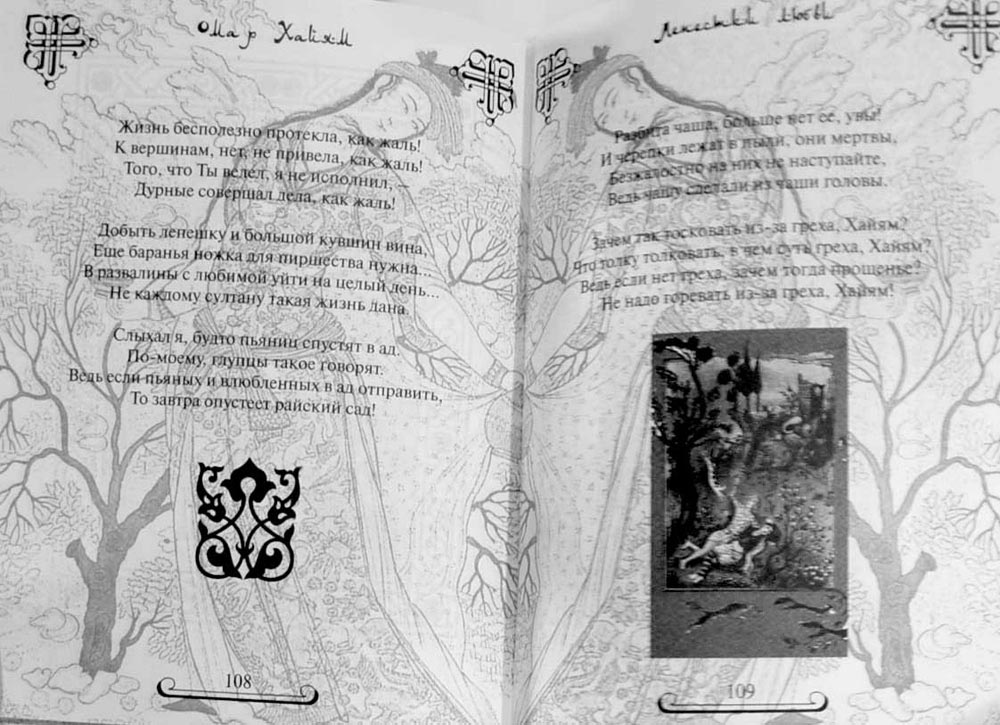 Омар Хайям
Жизнь бесполезно протекла, как жаль!
К вершинам, нет, не привела, как жаль!
Того, что Ты велел, я не исполнил, –
Дурные совершал дела, как жаль!
Добыть лепешку и большой кувшин вина,
Еще баранья ножка для пиршества нужна...
В развалины с любимой уйти на целый день...
Не каждому султану такая жизнь дана.
Слыхал я, будто пьяниц спустят в ад.
По-моему, глупцы такое говорят.
Ведь если пьяных и влюбленных в ад отправить,
То завтра опустеет райский сад!
108
Лепестки любви
Разбита чаша, больше нет ее, увы!
И черепки лежат в пыли, они мертвы,
Безжалостно на них не наступайте,
Ведь чашу сделали из чаши головы.
Зачем так тосковать из-за греха, Хайям?
Что толку толковать, в чем суть греха, Хайям?
Ведь если нет греха, зачем тогда прощенье?
Не надо горевать из-за греха, Хайям!
109